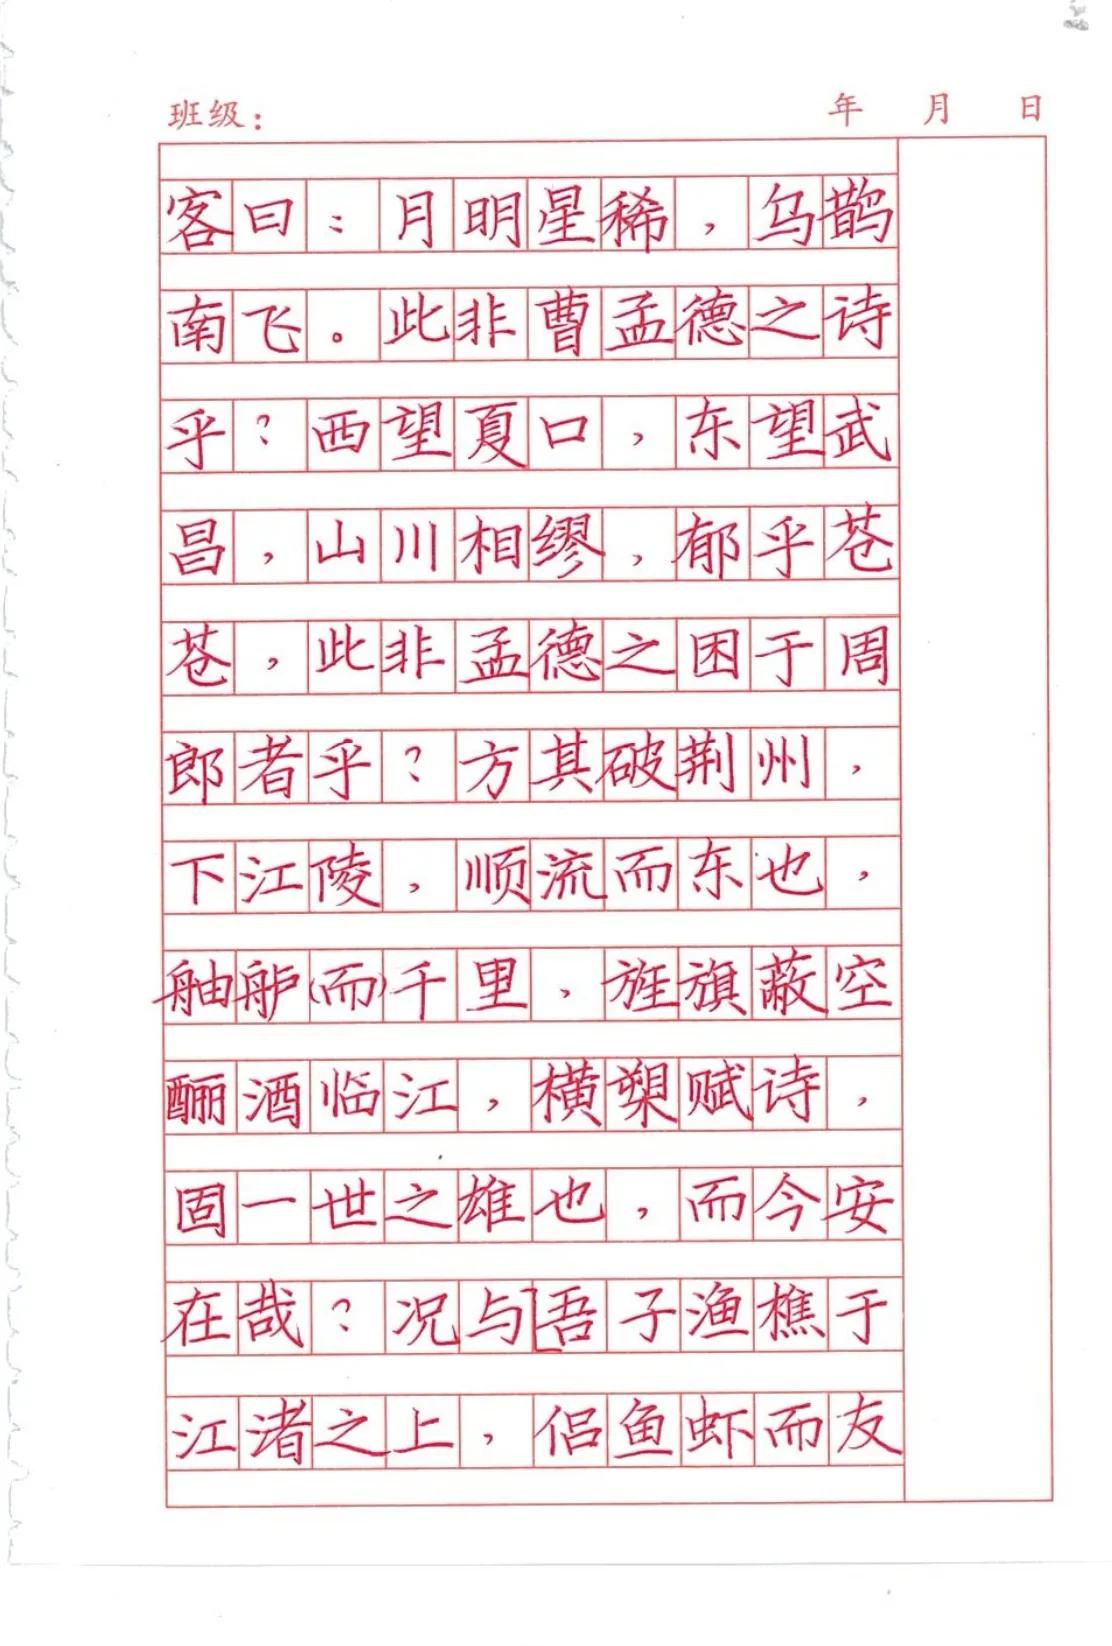 班级： 年 月 日
客曰：月明星稀，乌鹊
南飞。此非曹孟德之诗
乎？西望夏口，东望武
昌，山川相缪，郁乎苍
苍，此非孟德之困于周
郎者乎？方其破荆州，
下江陵，顺流而东也，
舳舻(而)千里，旌旗蔽空
酾酒临江，横槊赋诗，
固一世之雄也，而今安
在哉？况与[吾子渔樵于
江渚之上，侣鱼虾而友